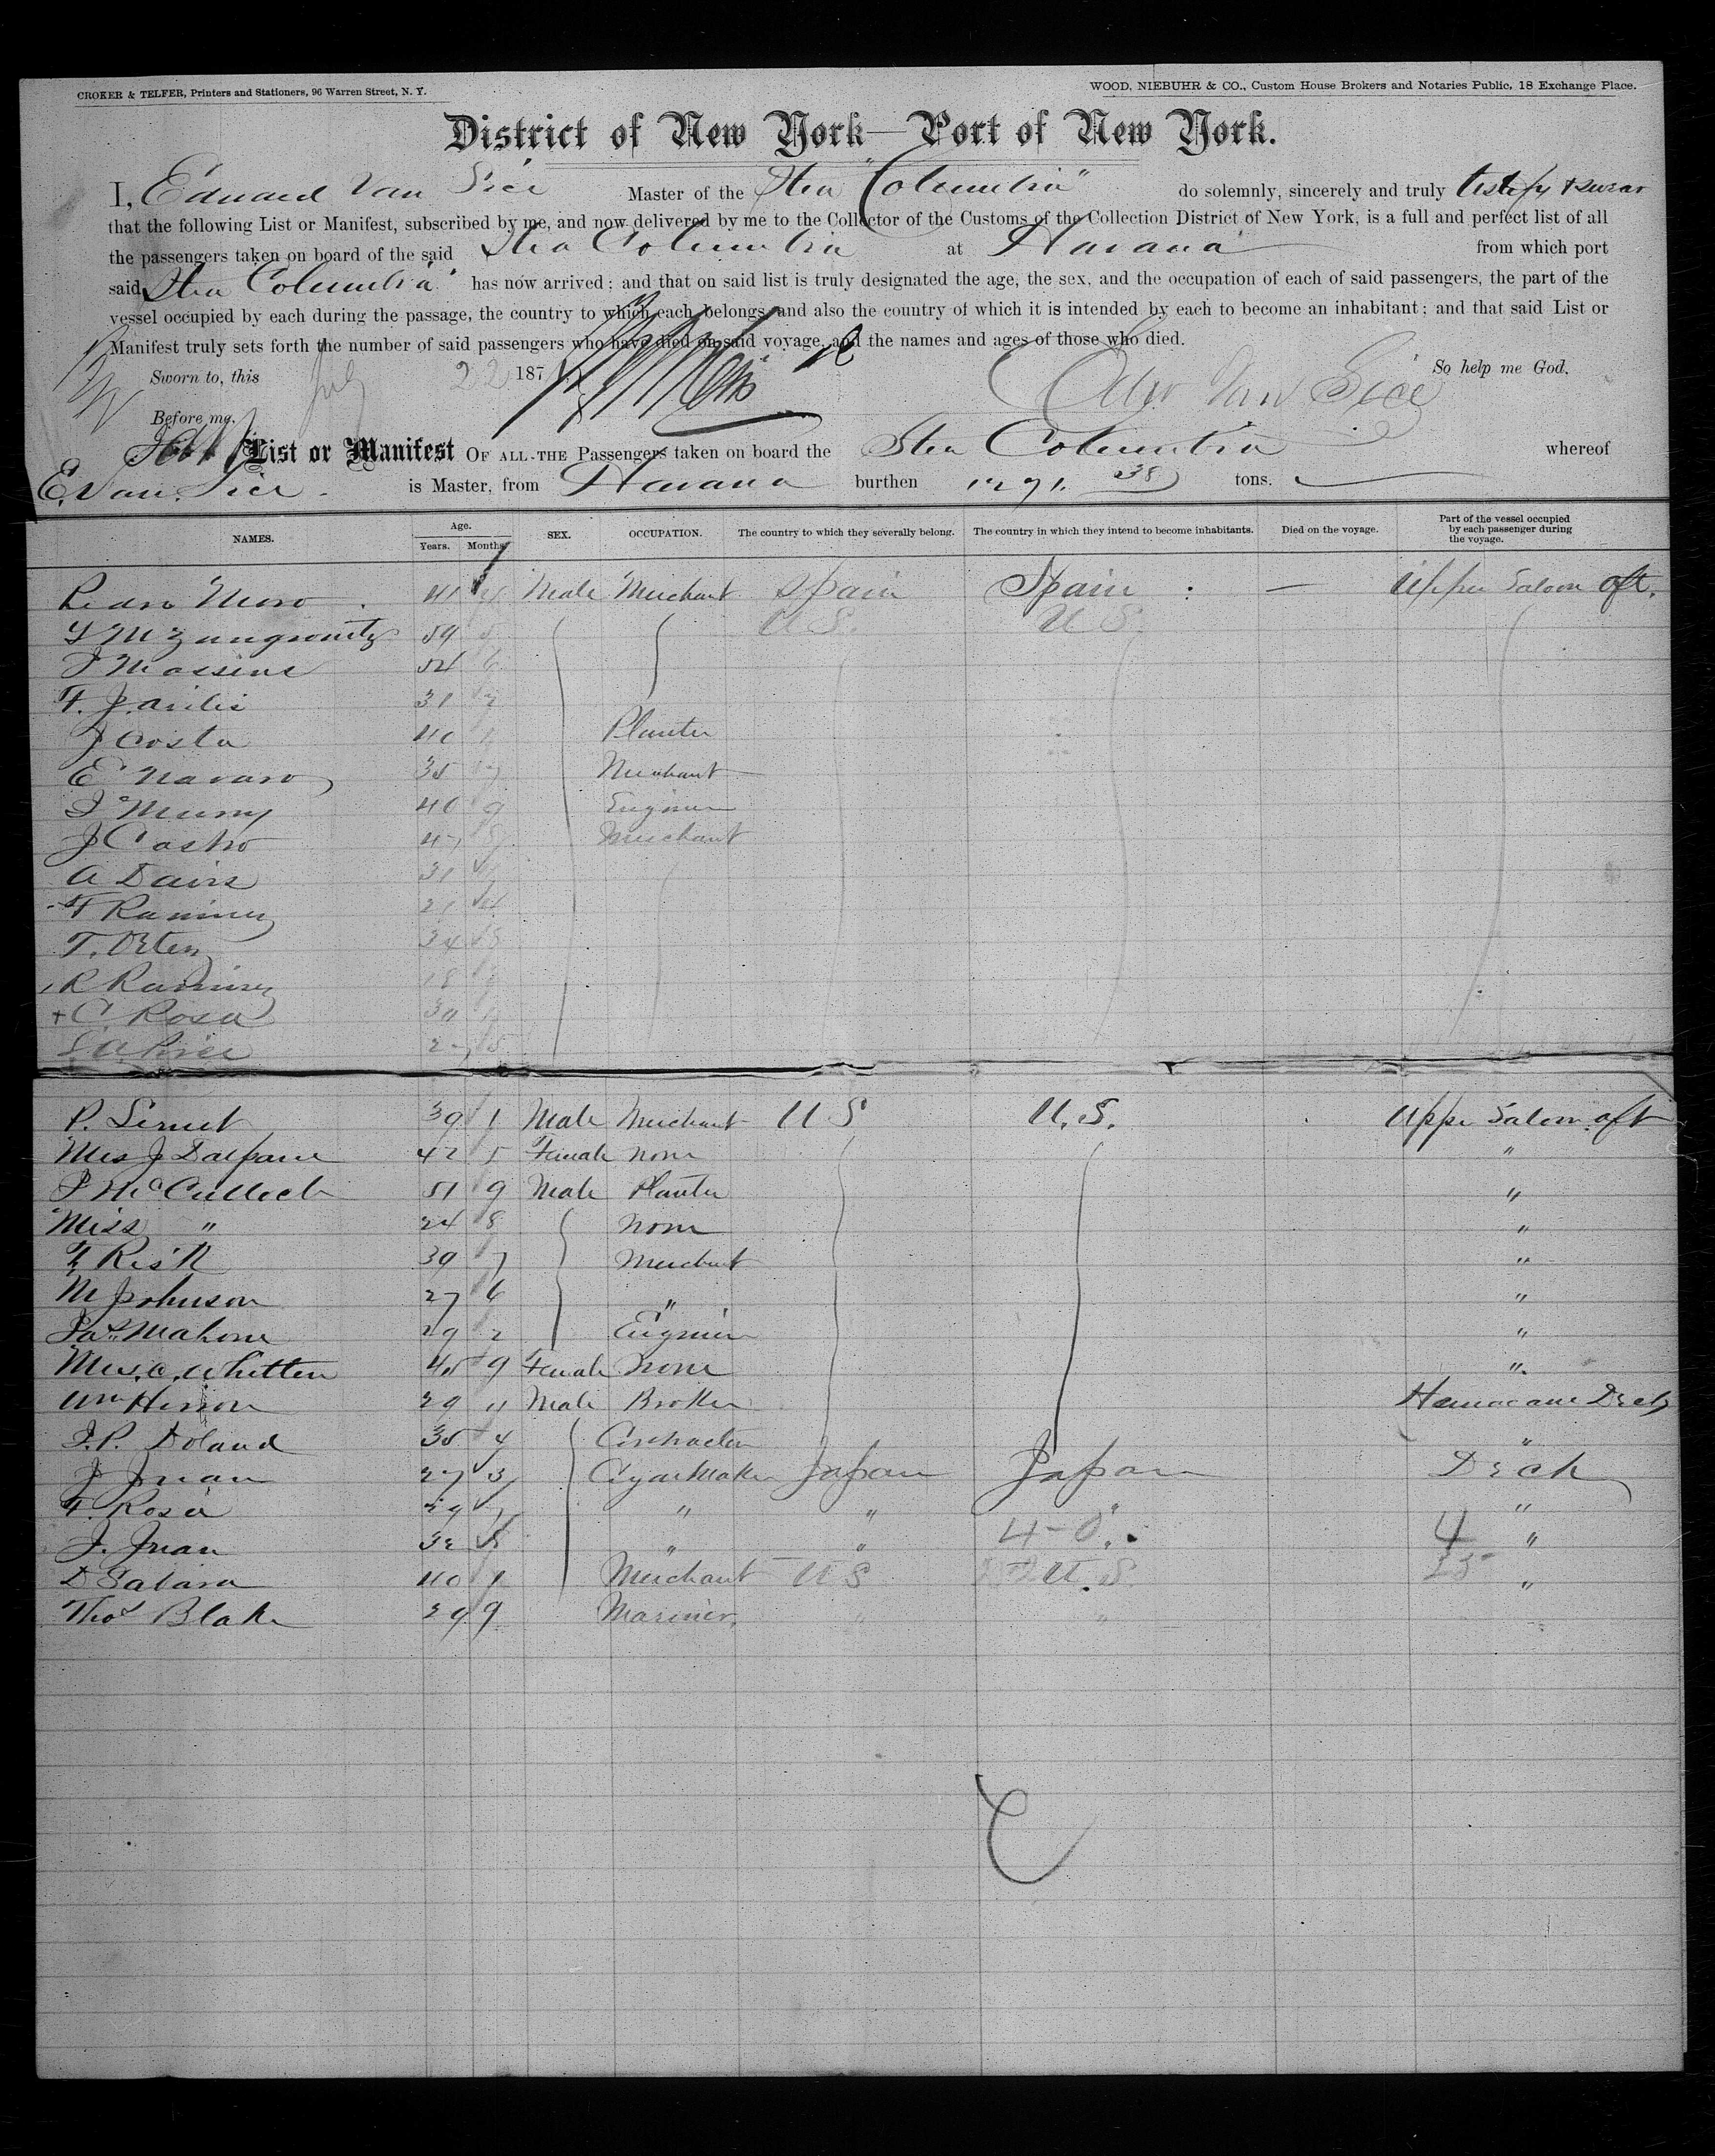 CROKER & TELFER, Printers and Stationers, 96 Warren Street, N. Y.
WOOD, NIEBUHR & CO., Custom House Brokers and Notaries Public, 18 Exchange Place.
District of New York—Port of New York.
I, Edward Van Sice Master of the Stea "Columbia" do solemnly, sincerely and truly testify & swear
that the following List or Manifest, subscribed by me, and now delivered by me to the Collector of the Customs of the Collection District of New York, is a full and perfect list of all
the passengers taken on board of the said Stea Columbia at Havana from which port
said Stea Columbia has now arrived; and that on said list is truly designated the age, the sex, and the occupation of each of said passengers, the part of the
vessel occupied by each during the passage, the country to which each belongs, and also the country of which it is intended by each to become an inhabitant; and that said List or
Manifest truly sets forth the number of said passengers who have died on said voyage, and the names and ages of those who died.
Sworn to, this July 22 187 So help me God,
Edw Van Sice
Before me,
List or Manifest OF ALL THE Passengers taken on board the Stea Columbia whereof
E. Van Sice is Master, from Havana burthen 1271. 38 tons.
NAMES. Age. Years. Months. SEX. OCCUPATION. The country to which they severally belong. The country in which they intend to become inhabitants. Died on the voyage. Part of the vessel occupied by each passenger during the voyage.
Pedro Moro 41 4 Male Merchant Spain Spain — Upper Saloon aft.
59 5 U S. U S.
54 6
31 7
J Costa 40 1 Planter
E Navaro 35 7 Merchant
40 9 Engineer
J Castro 47 8 Merchant
A Davis 31
F Ramirez 21 4
T. Ortez 34 8
R Ramirez 18
+ C. Rosa
S. A. Price 27 5
P. 39 1 Male Merchant U S U. S. Upper Saloon aft
Mrs J 42 5 Female none "
P McCulloch 51 9 Male Planter "
Miss " 24 8 none "
Risk 39 7 Merchant "
M Johnson 27 6 " "
Jas Mahone 29 2 Engineer "
Mrs. C. Whitten 45 9 Female none "
Wm 29 11 Male Broker Hurricane Deck
J. P. Doland 35 4 Contractor "
J Juan 27 3 Cigar Maker Japan Japan Deck
F. Rosa 29 1 " " " "
J. Juan 32 8 " " 4-0. 4 "
D 40 1 Merchant U S U. S. "
Thos Blake 29 9 Mariner, " "